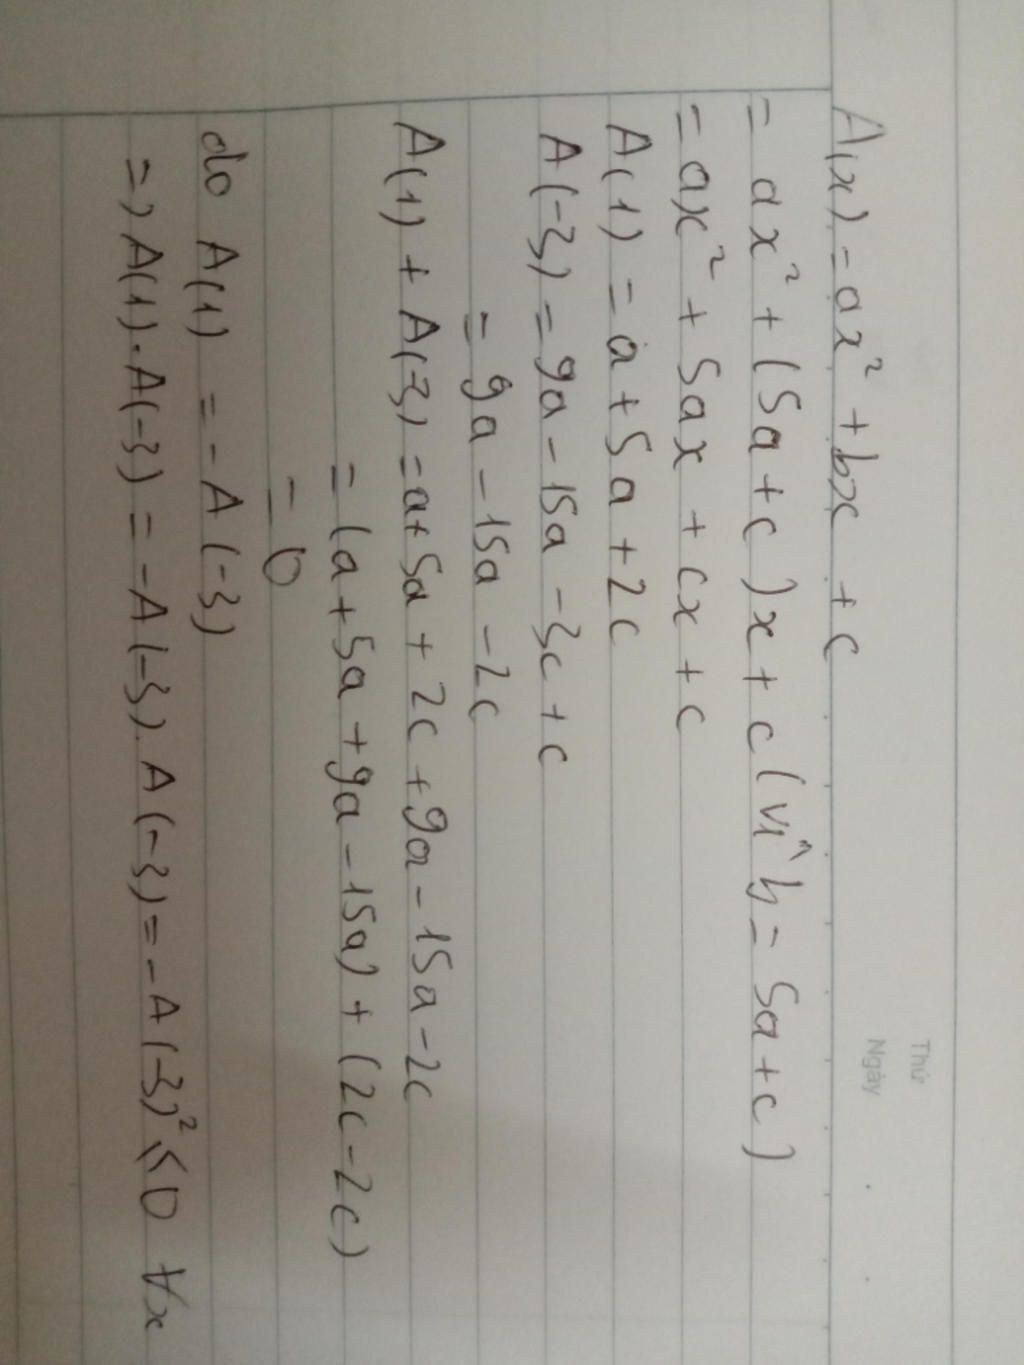 Thứ
Ngày
A(x) = ax² + bx + c
= ax² + (5a + c)x + c (vì b = 5a + c)
= ax² + 5ax + cx + c
A(1) = a + 5a + 2c
A(-3) = 9a - 15a - 3c + c
= 9a - 15a - 2c
A(1) + A(-3) = a + 5a + 2c + 9a - 15a - 2c
= (a + 5a + 9a - 15a) + (2c - 2c)
= 0
do A(1) = - A(-3)
=> A(1).A(-3) = -A(-3).A(-3) = -A(-3)² ≤ 0 ∀x